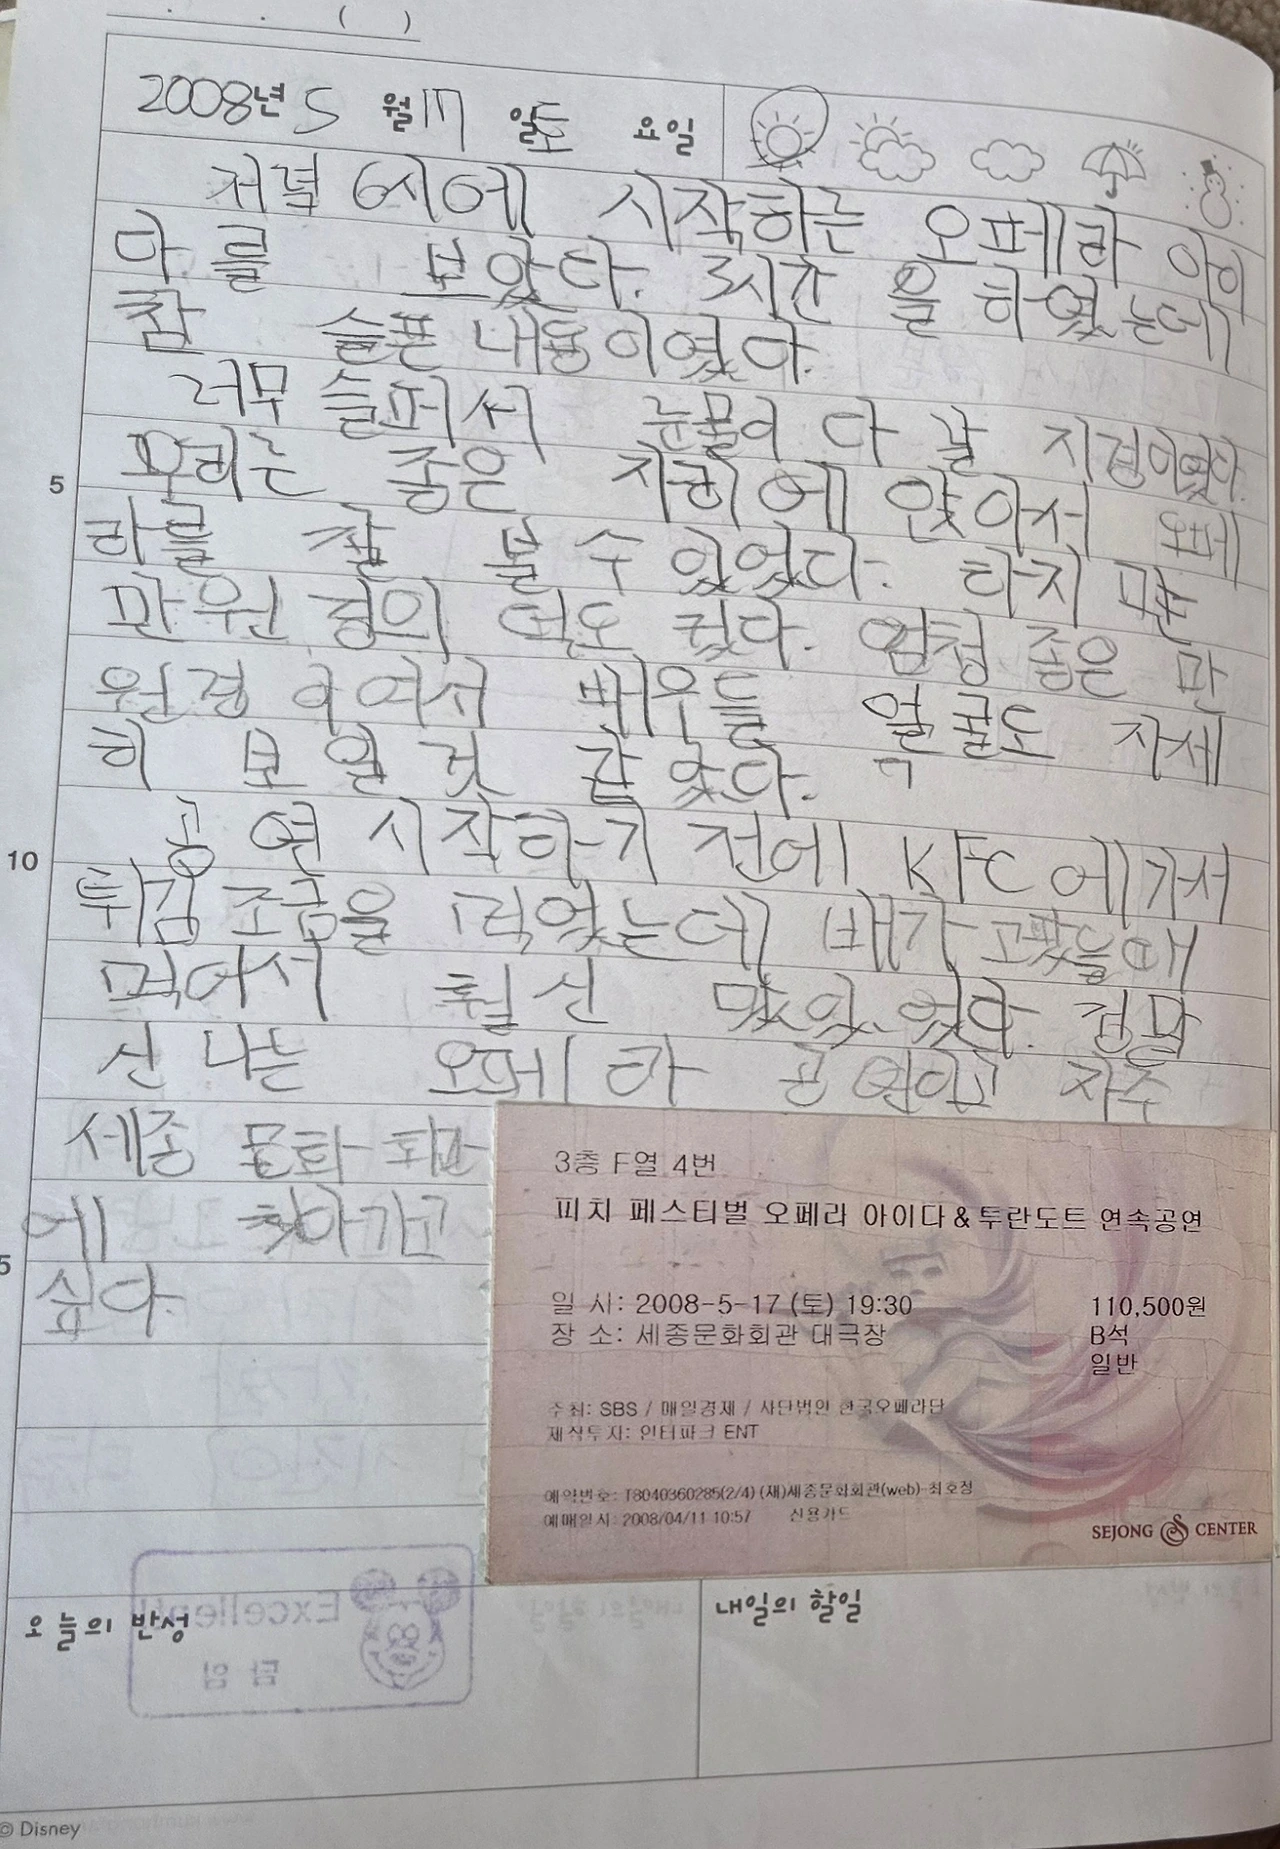 . . ( )
2008년 5 월 17 일 토 요일
저녁 6시에 시작하는 오페라 아이
다를 보았다. 3시간 을 하였는데
참 슬픈 내용이였다.
너무 슬퍼서 눈물이 다 날 지경이였다.
우리는 좋은 자리에 앉아서 오페
라를 잘 볼 수 있었다. 하지만
만원경의 덕도 컸다. 엄청 좋은 만
원경 이여서 배우들 얼굴도 자세
히 보일 것 같았다.
공연 시작하기 전에 KFC에가서
튀김 조금을 먹었는데 배가 고팠을때
먹어서 훨신 맛있었다. 정말
신나는 오페라 공연이고 자주
세종 문화 회관
에 찾아가고
싶다.
5
10
5
3층 F열 4번
피치 페스티벌 오페라 아이다&투란도트 연속공연
일 시: 2008-5-17 (토) 19:30 110,500원
장 소: 세종문화회관 대극장 B석
일반
주최: SBS / 매일경제 / 사단법인 한국오페라단
제작투자: 인터파크 ENT
예약번호: T8040360285(2/4) (재)세종문화회관(web)-최호정
예매일시: 2008/04/11 10:57 신용카드
SEJONG CENTER
오늘의 반성 내일의 할일
Excellent!
담임
© Disney